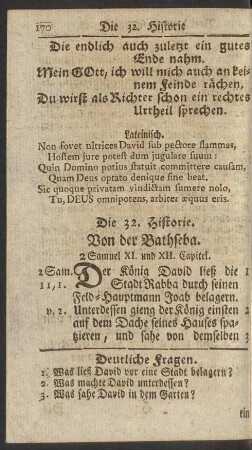 170 Die 32. Historie
Die endlich auch zuletzt ein gutes
Ende nahm.
Mein GOtt, ich will mich auch an kei-
nem Feinde rächen,
Du wirst als Richter schon ein rechtes
Urtheil sprechen.
Lateinisch.
Non fovet ultrices David sub pectore flammas,
Hostem jure potest dum jugulare suum:
Quin Domino potius statuit committere causam,
Quam Deus optato denique fine beat.
Sic quoque privatam vindictam sumere nolo,
Tu, DEUS omnipotens, arbiter æquus eris.
Die 32. Historie.
Von der Bathseba.
2 Samuel XI. und XII. Capitel.
2 Sam. Der König David ließ die 1
11, 1. Stadt Rabba durch seinen
Feld-Hauptmann Joab belagern.
v. 2. Unterdessen gieng der König einsten 2
auf dem Dache seines Hauses spa-
zieren, und sahe von demselben 3
Deutliche Fragen.
1. Was ließ David vor eine Stadt belagern?
2. Was machte David unterdessen?
3. Was sahe David in dem Garten?
ein